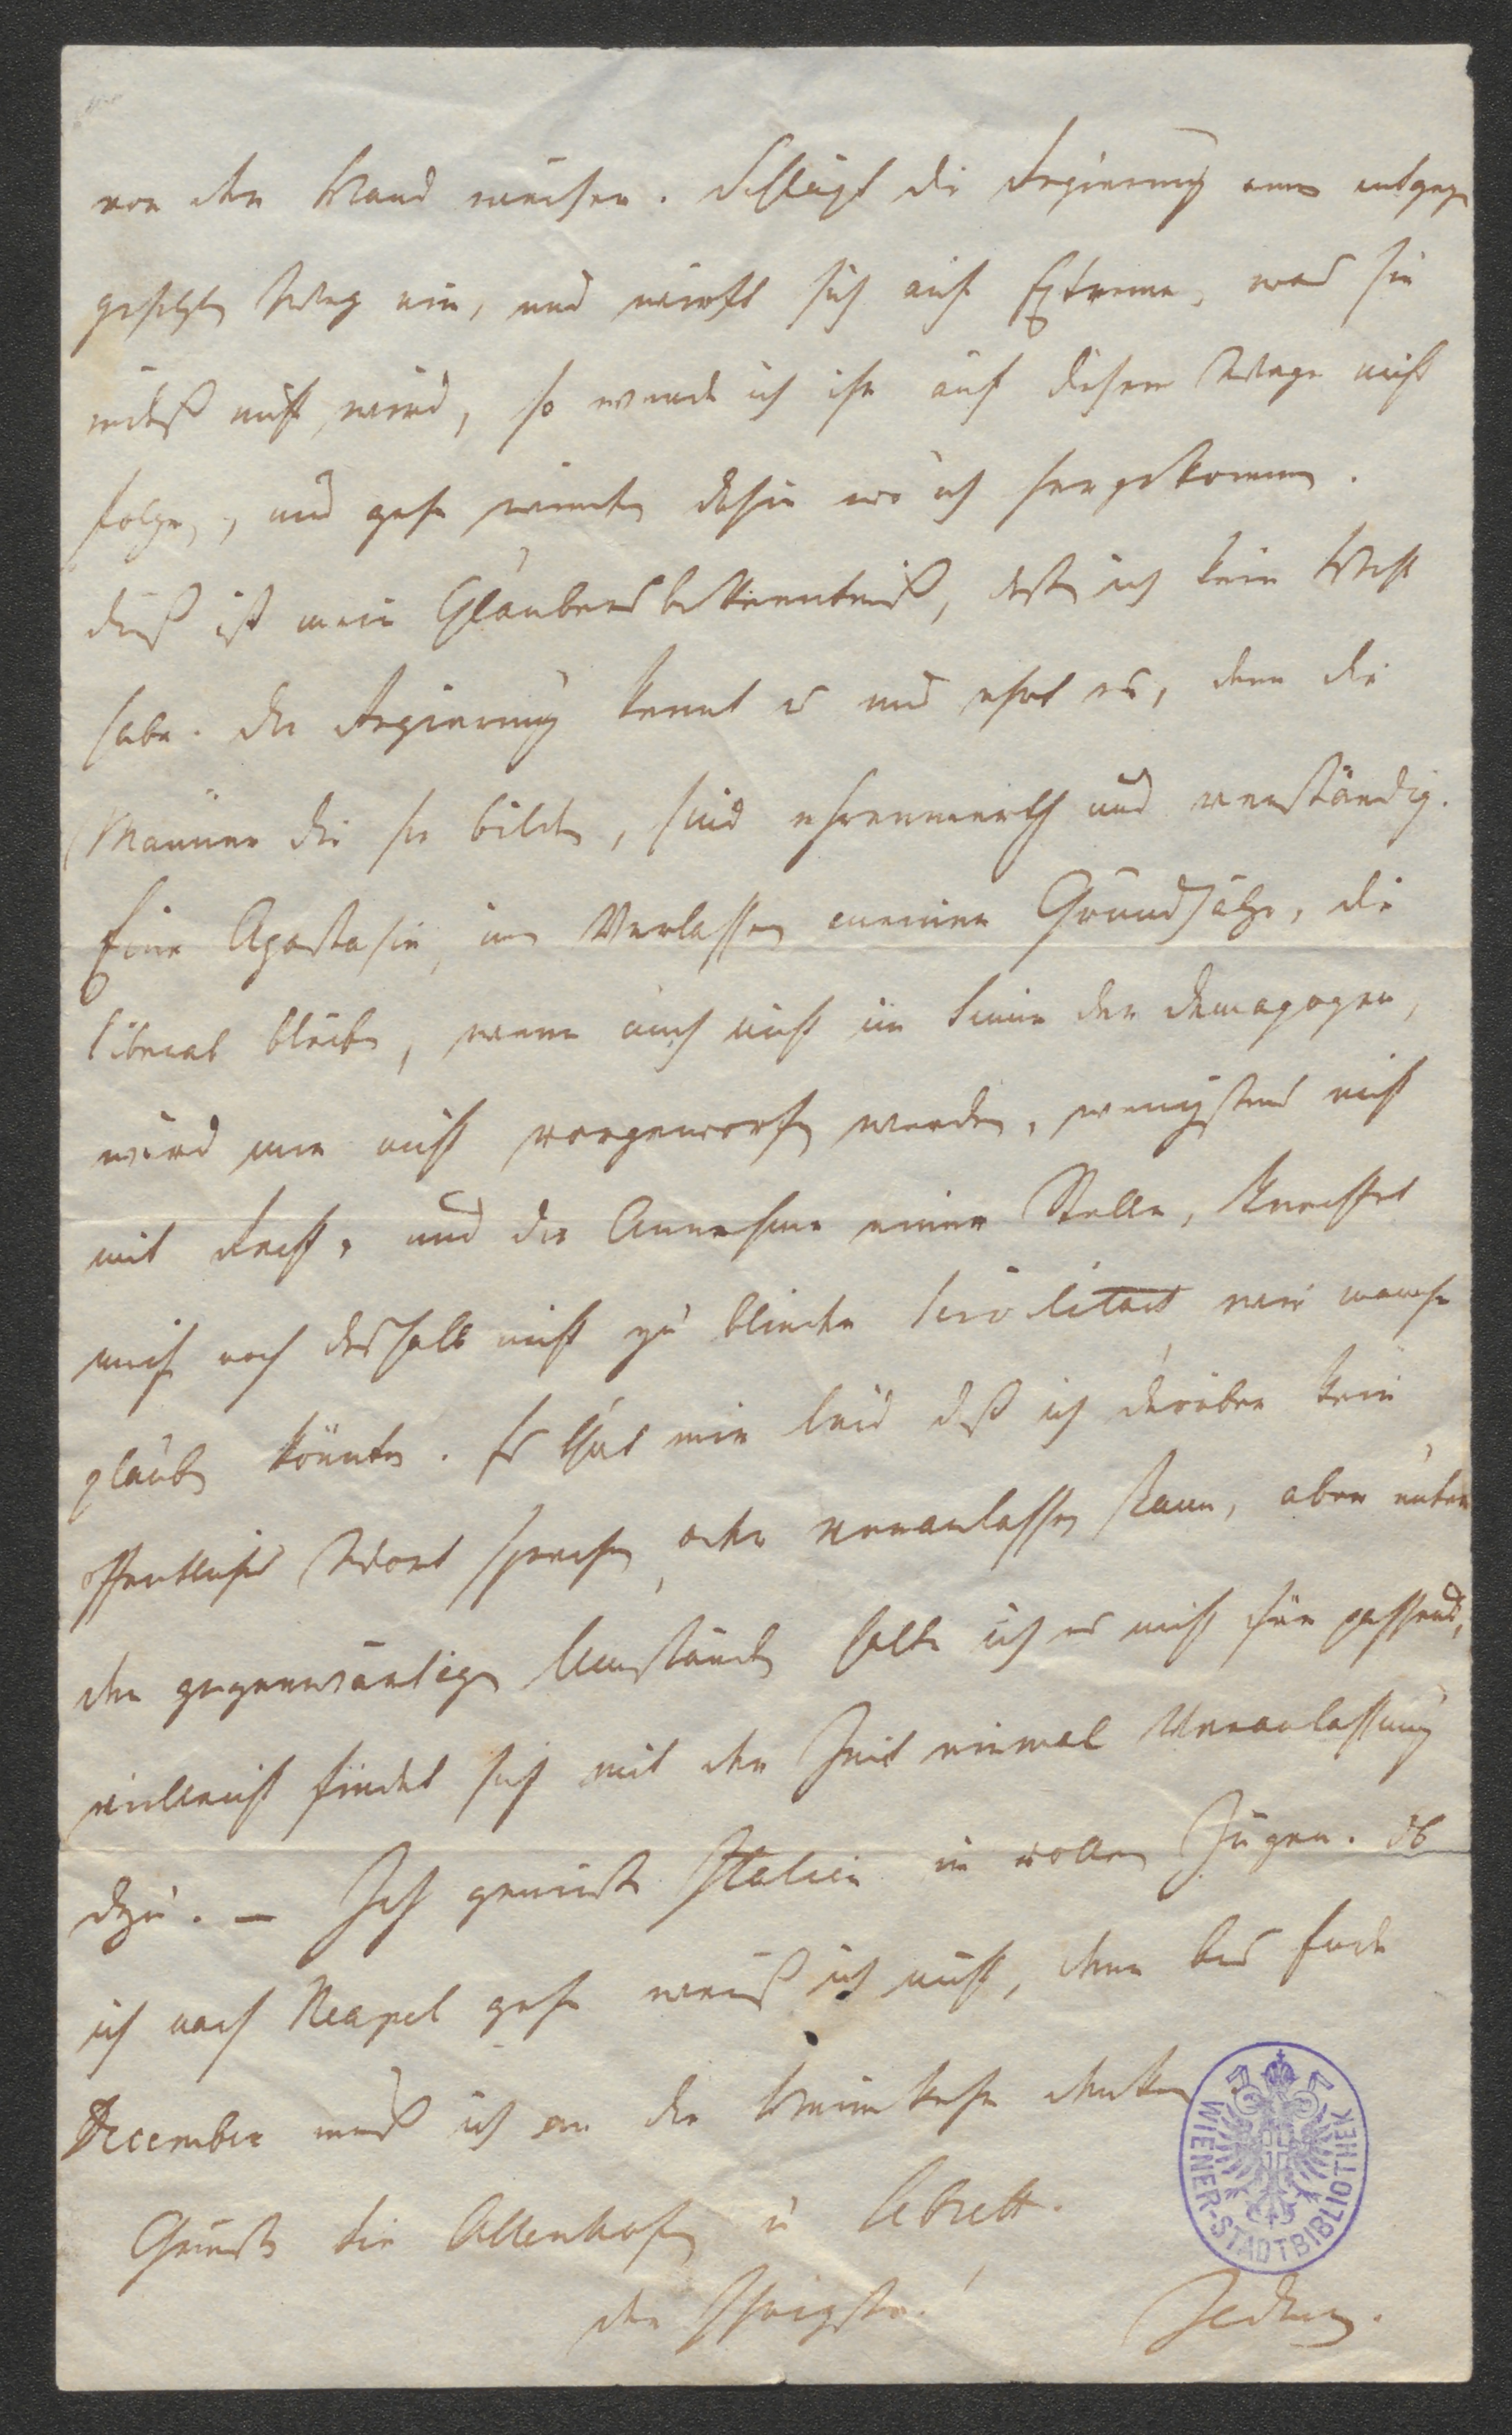 von der Wand weichen. Schlägt die Regierung einen entgegen
gesetzten Weg ein, und wirft sich auf Extreme, was sie
indeß nicht wird, so werde ich ihr auf diesem Wege nicht
folgen, und gehe wieder dahin wo ich hergekommen.
dieß ist mein Glaubensbekenntniß, deß ich kein Hehl
habe. die Regierung kennt es und ehrt es, denn die
Männer die sie bilden, sind ehrenwerth und verständig.
Eine Apostasie, ein Verlassen meiner Grundsätze, die
liberal bleiben, wenn auch nicht im Sinne der Demagogen,
wird mir nicht vorgeworfen werden, wenigstens nicht
mit Recht, und die Annahme einer Stelle, knechtet
mich noch deshalb nicht zu blinder Servilität, wie manche
glauben könnten. Es thut mir leid daß ich darüber kein
öffentliches Wort sprechen, oder veranlassen kann, aber unter
den gegenwärtigen Umständen halte ich es nicht für passend,
vielleicht findet sich mit der Zeit einmal Veranlassung
dazu. – Ich genieße Italien in vollen Zügen. Ob
ich nach Neapel gehe weiß ich nicht, denn bis Ende
December muß ich an die Heimkehr denken
Grüße die Altenhofen u
der Ihrigste!
WIENER-STADTBIBLIOTHEK